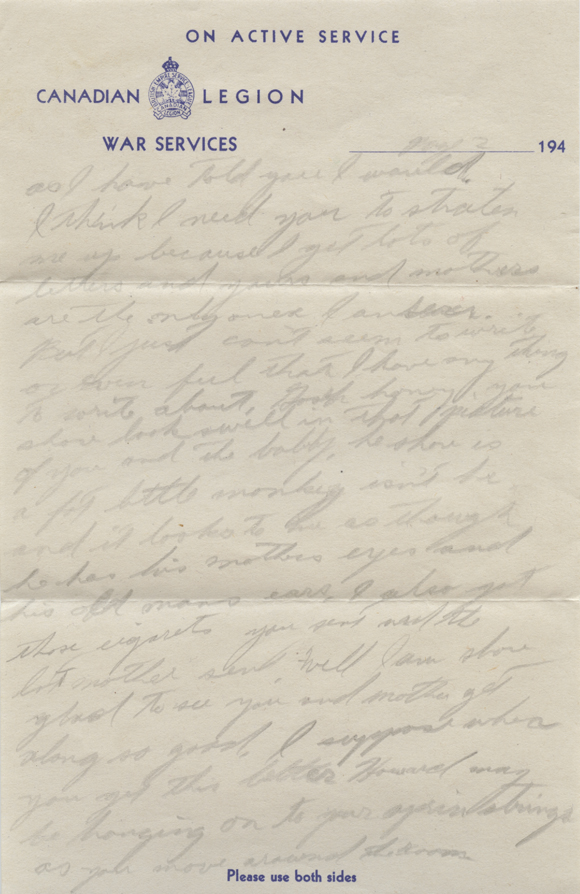 ON ACTIVE SERVICE
CANADIAN LEGION
WAR SERVICES
May 2 194
as I have told you I would.
I think I need your to straten
me up because I get lots of
letters and yours and mothers
are the only ones I answer.
But I just can't seem to write
or ever feel that I have any thing
to write about. Gosh honey you
shore look swell in that picture
of you and the baby, he shore is
a fat little monkey isn't he
and it looks to me as though
he has his mothers eyes and
his old mans ears. I also got
those cigarets you sent and the
lot mother sent. Well I am shore
glad to see you and mother get
along so good. I suppose when
you get this letter Howard may
be hanging on to your aprin strings
as you move around
Please use both sides